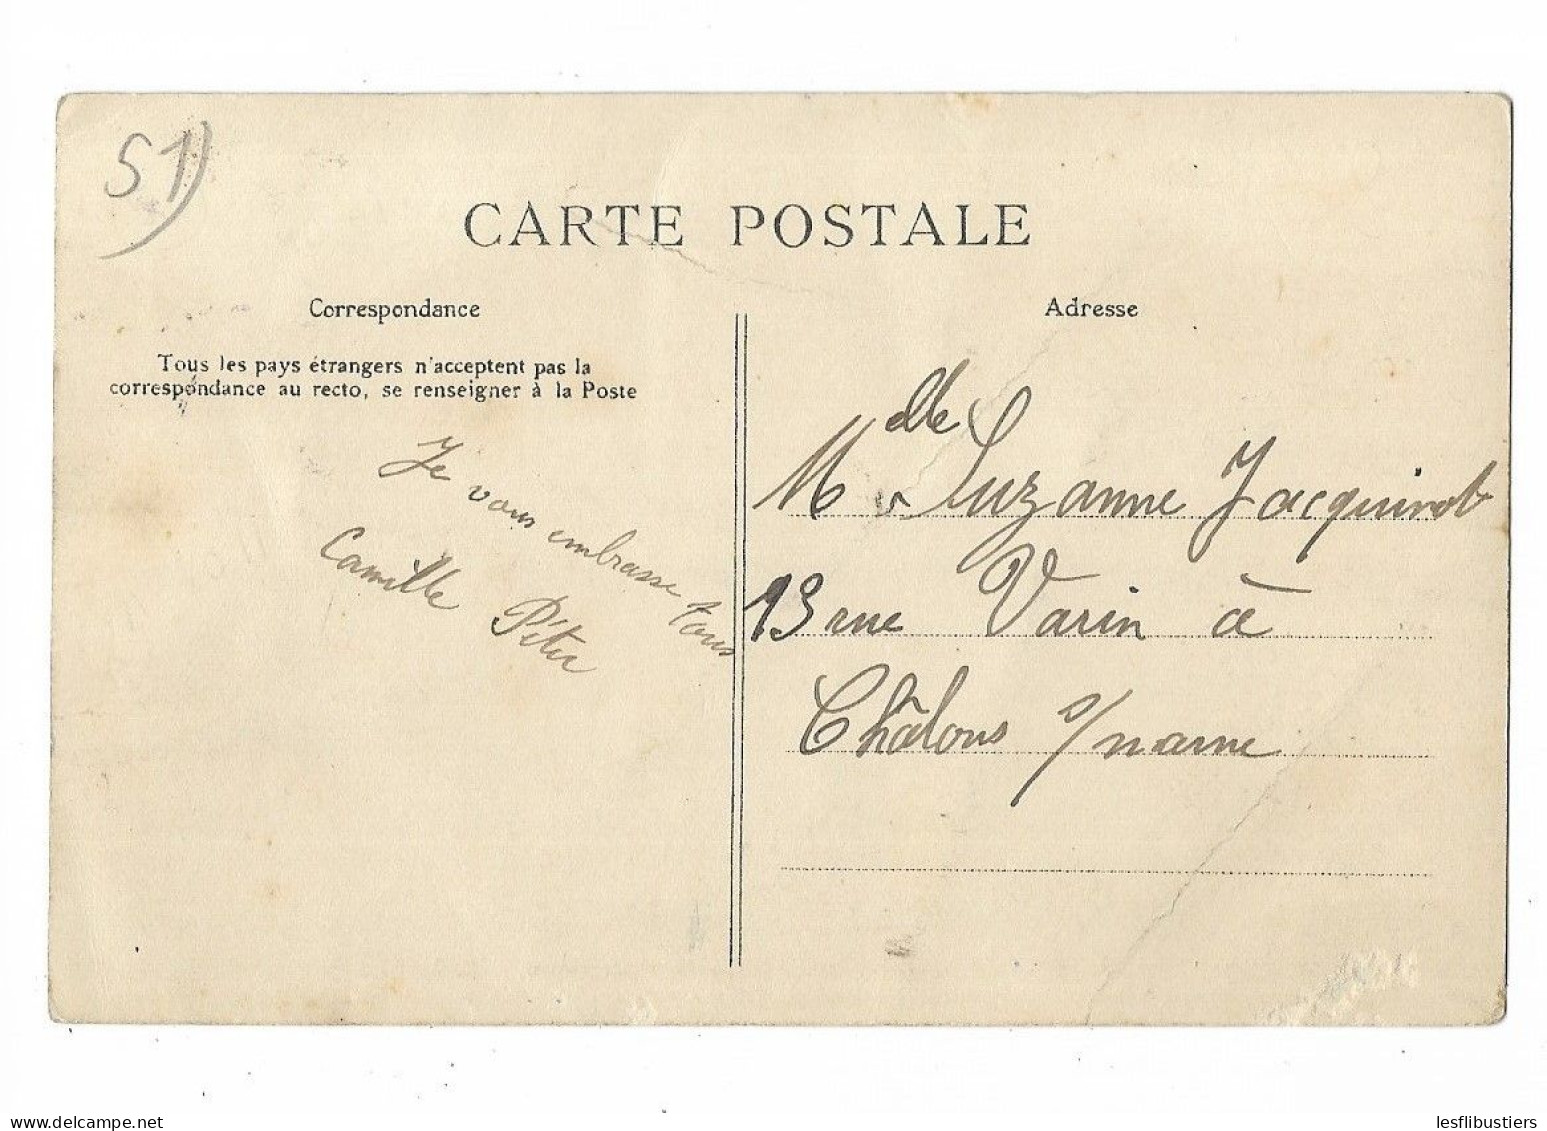 51)
CARTE POSTALE
Correspondance
Tous les pays étrangers n'acceptent pas la
correspondance au recto, se renseigner à la Poste
Je vous embrasse tous
Camille
Adresse
Melle Suzanne Jacquinot
13 rue Varin à
Châlons s/marne
delcampe.net
lesflibustiers